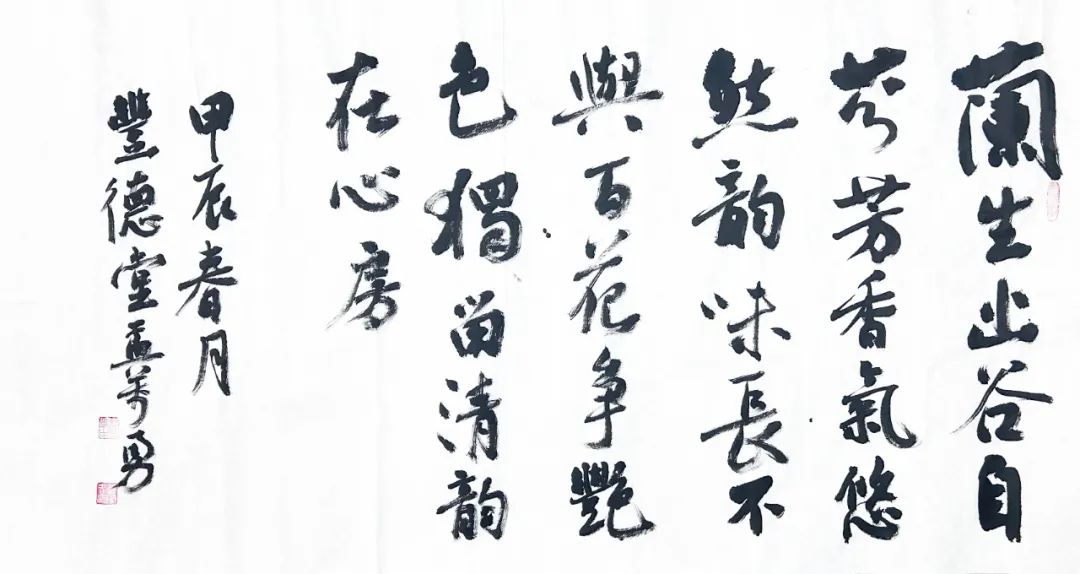 蘭生山谷自
芬芳香氣悠
然韵味長不
與百花争艷
色獨留清韵
在心房
甲辰春月
豐德堂孟萬勇